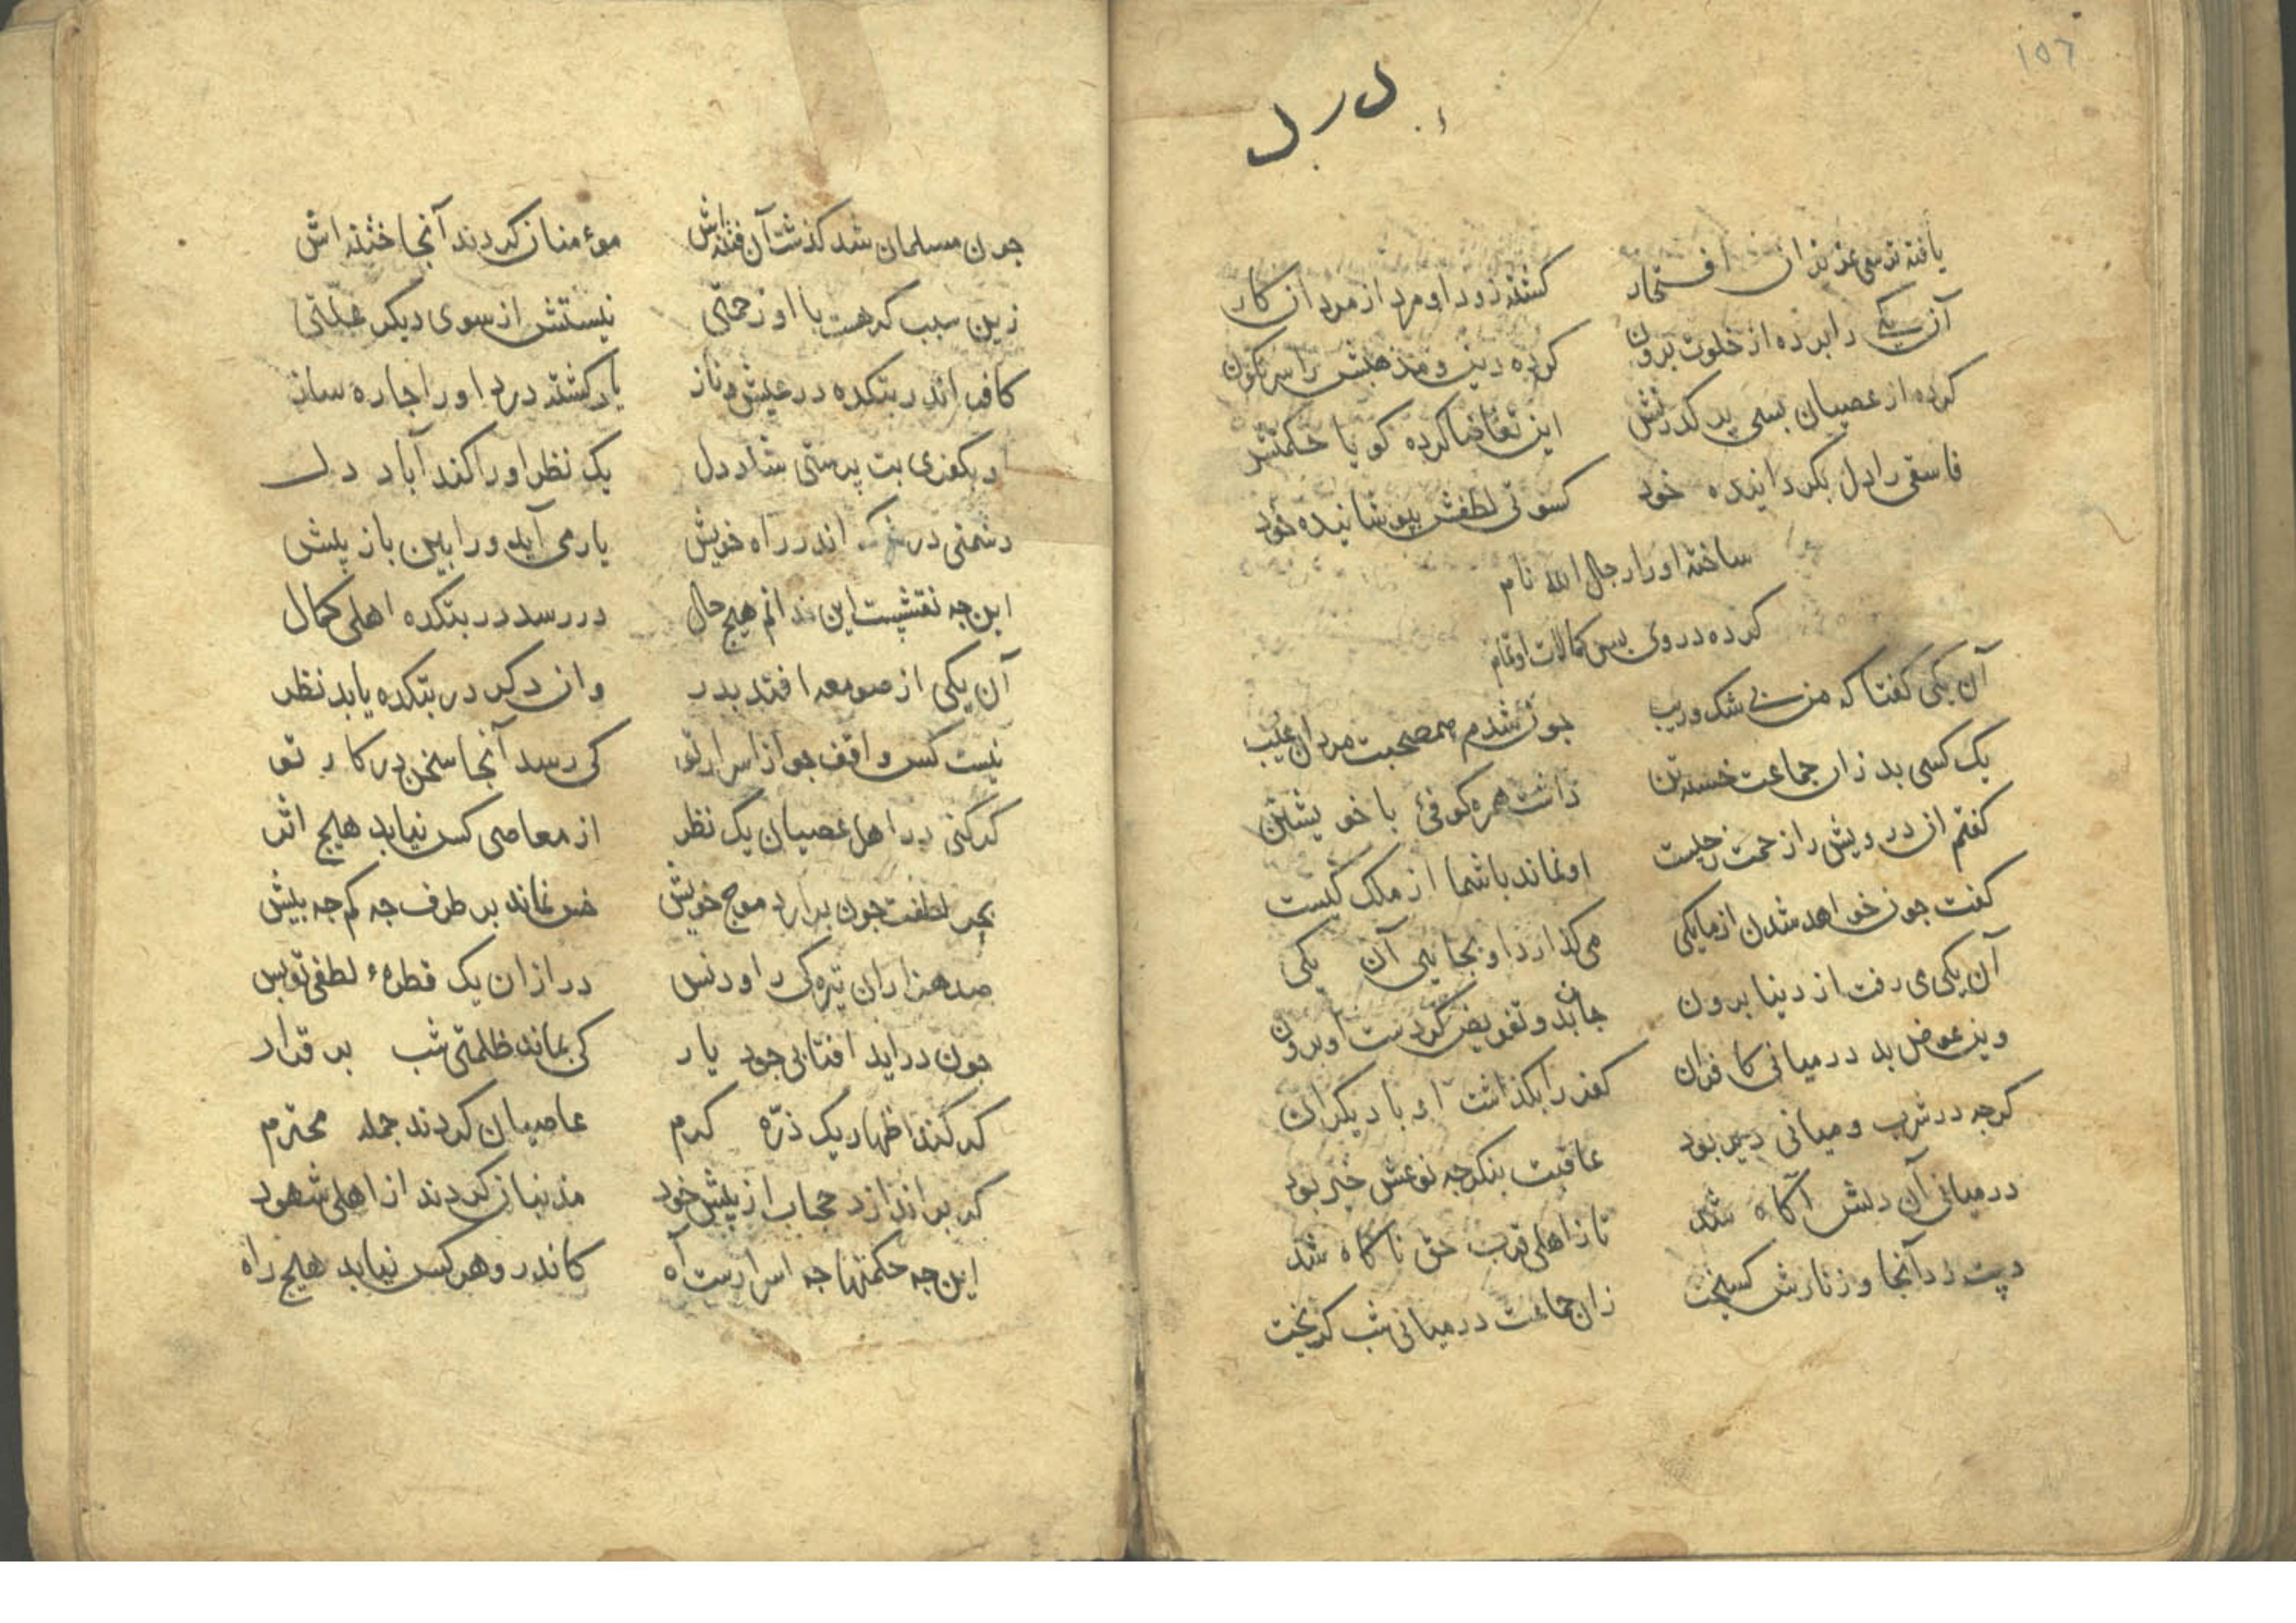 ١٥٦
در دل
یافته ترسی عزیزان افتخار کشته زود او مرد از مردان کار
آن یکی را برده از خلوت برون کرده دین و مذهبش را سرنکون
کرده از عصیان بسی پر کدرتش این تقاضا کرده کویا حکمتش
فاسقی را دل بکردانیده خود کسوتی لطفش بپوشانیده خود
ساخته او را رجال الله نام
کرده در وی بس کمالات او تمام
آن یکی کفتا که من بی شک و ریب جون شدم همصحبت مردان غیب
یک کسی بد زان جماعت خسته تن داشت همره کوفی با خویشتن
کفتم از درویش را زحمت زجیست او نماند با شما از ملک کیست
کفت جون خواهد شدن از ما یکی می کذارد او بجایی آن یکی
آن یکی می رفت از دنیا برون جانبد و تفویض کردست او برون
وین عوض بد در میانی کافران کفر را بکذاشت او با دیکران
کرجه در شرب و میانی دیر بود عاقبت بنکر جه نوعش خیر بود
در میانی آن دلش آکاه شد تا ز اهلی قرب حق ناکاه شد
و بت زد آنجا و زنارش کسیخت زان جماعت در میانی شب کریخت
جون مسلمان شد کذشت آن فتنه اش موءمنان کردند آنجا ختنه اش
زین سبب کر هست با او زحمتی نیستش از سوی دیکر علّتی
کافر اندر بتکده در عیش و ناز یار کشته درد او را جاره ساز
در کفری بت پرستی شاد دل یک نظر او را کند آباد دل
دشمنی در اندر راه خویش یار می آید ورا بین باز پیش
این جه نقشیست این ندانم هیچ حال در رسد در بتکده اهلی کمال
آن یکی از صومعه افتد بدر وان دکر در بتکده یابد نظر
نیست کس واقف جو از اسرار تو کی رسد آنجا سخن در کار تو
کر کنی در اهل عصیان یک نظر از معاصی کس نیابد هیچ اثر
بحر لطفت جون برارد موج خویش خس نماند بر طرف جه کم جه بیش
صد هزاران تیره کی را و دنس در ازان یک قطرهٔ لطفی تو بس
جون دراید افتابی جود یار کی بماند ظلمتی شب بر قرار
کر کند اظهار یک ذرّه کرم عاصیان کردند جمله محترم
کر براندازد حجاب از پیش خود مذنبان کردند از اهلی شهود
این جه حکمتها جه اسرارست آه کاندر و هر کس نیابد هیچ راه